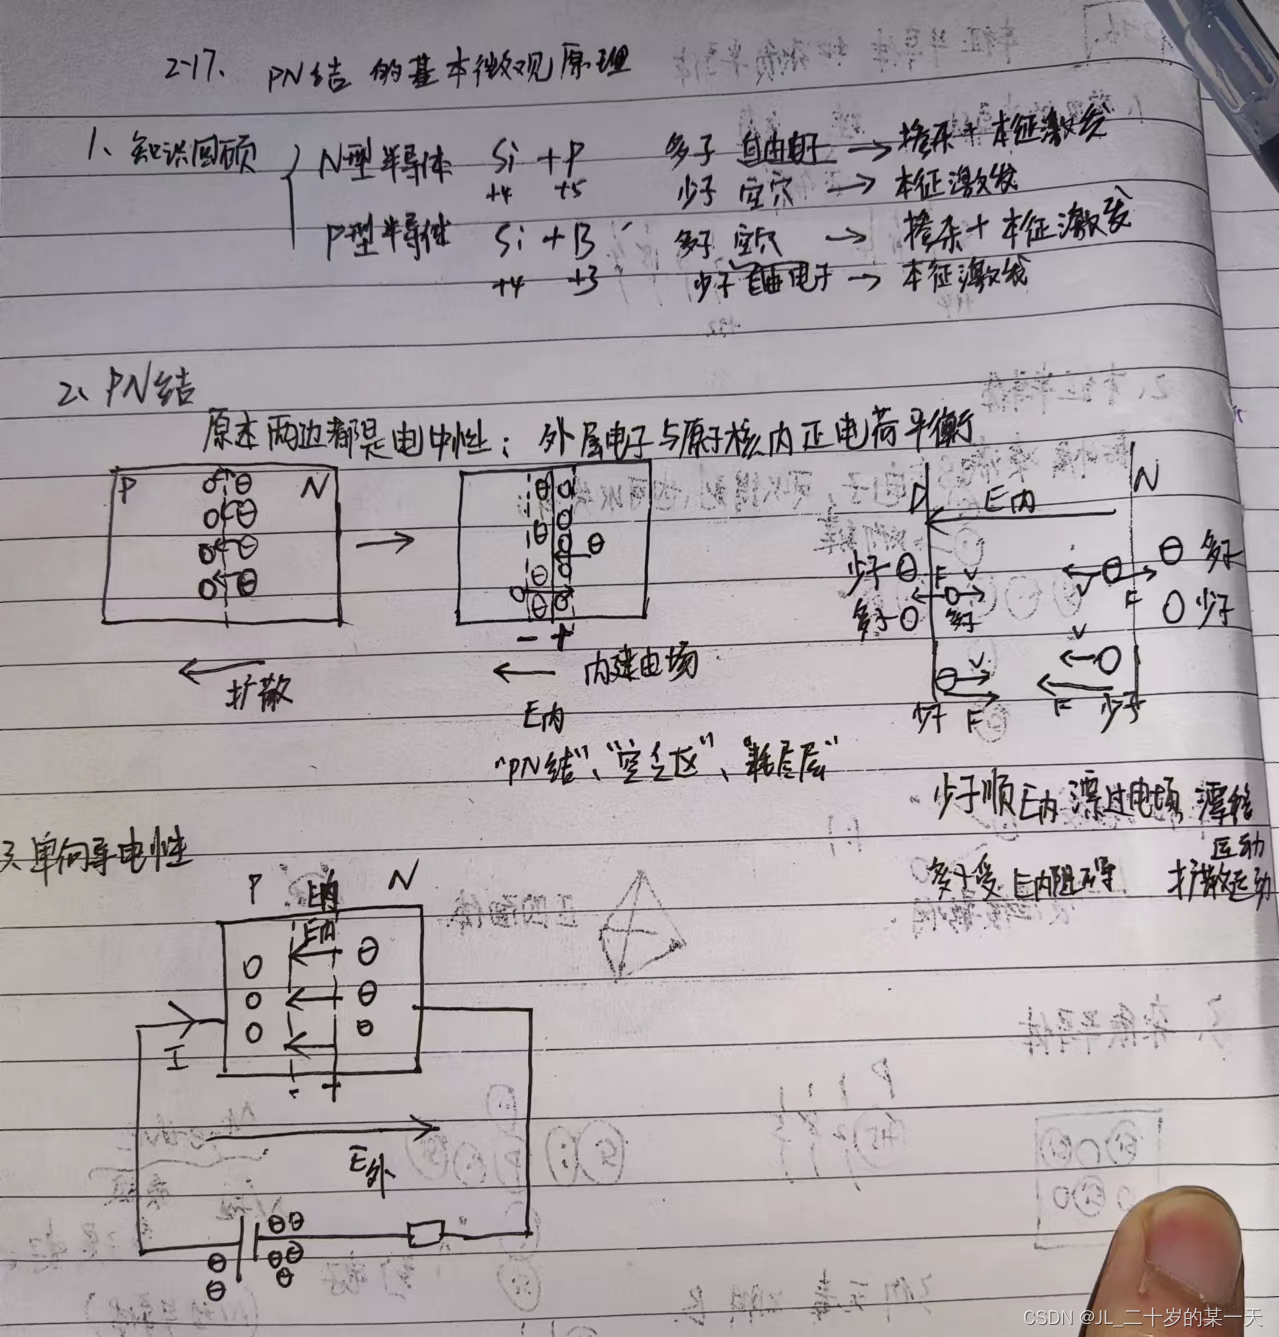 2-17. PN结的基本微观原理
1、知识回顾 N型半导体 Si + P 多子 自由电子 → 掺杂 + 本征激发
+4 +5 少子 空穴 → 本征激发
P型半导体 Si + B 多子 空穴 → 掺杂 + 本征激发
+4 +3 少子 自由电子 → 本征激发
2、PN结
原本两边都是电中性；外层电子与原子核内正电荷平衡
P N
P E内 N
少子 F V V F 多子
多子 多子 少子
V V
少子 F F 少子
- +
扩散 内建电场
E内
"PN结"、"空乏区"、"耗尽层"
少子顺E内漂过电场 漂移运动
多子受E内阻碍 扩散运动
3、单向导电性
P N
E内
I
- +
E外
CSDN @JL_二十岁的某一天